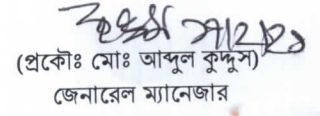 (প্রকৌঃ মোঃ আব্দুল কুদ্দুস)
জেনারেল ম্যানেজার